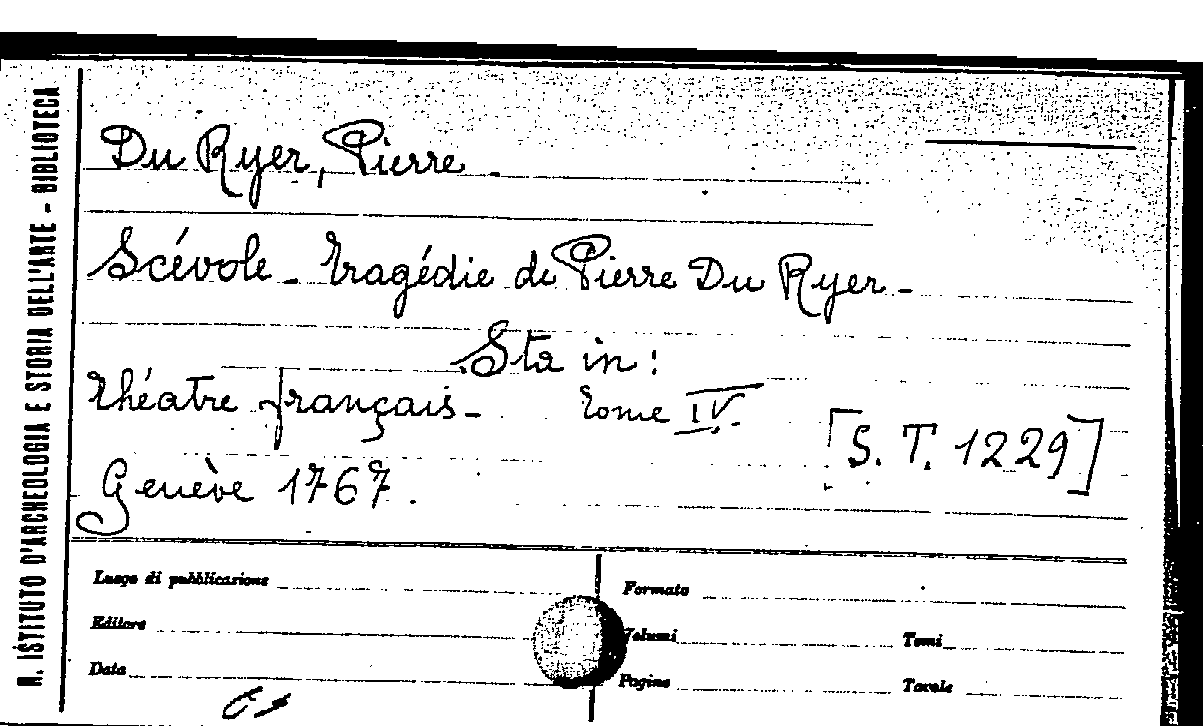 R. ISTITUTO D'ARCHEOLOGIA E STORIA DELL'ARTE - BIBLIOTECA
Du Ryer, Pierre.
Scévole - tragédie de Pierre Du Ryer -
Sta in:
théatre français - Tome IV.
[S. T. 1229]
Genève 1767.
Luogo di pubblicazione
Formato
Editore
Volumi
Tomi
Data
Pagine
Tavole